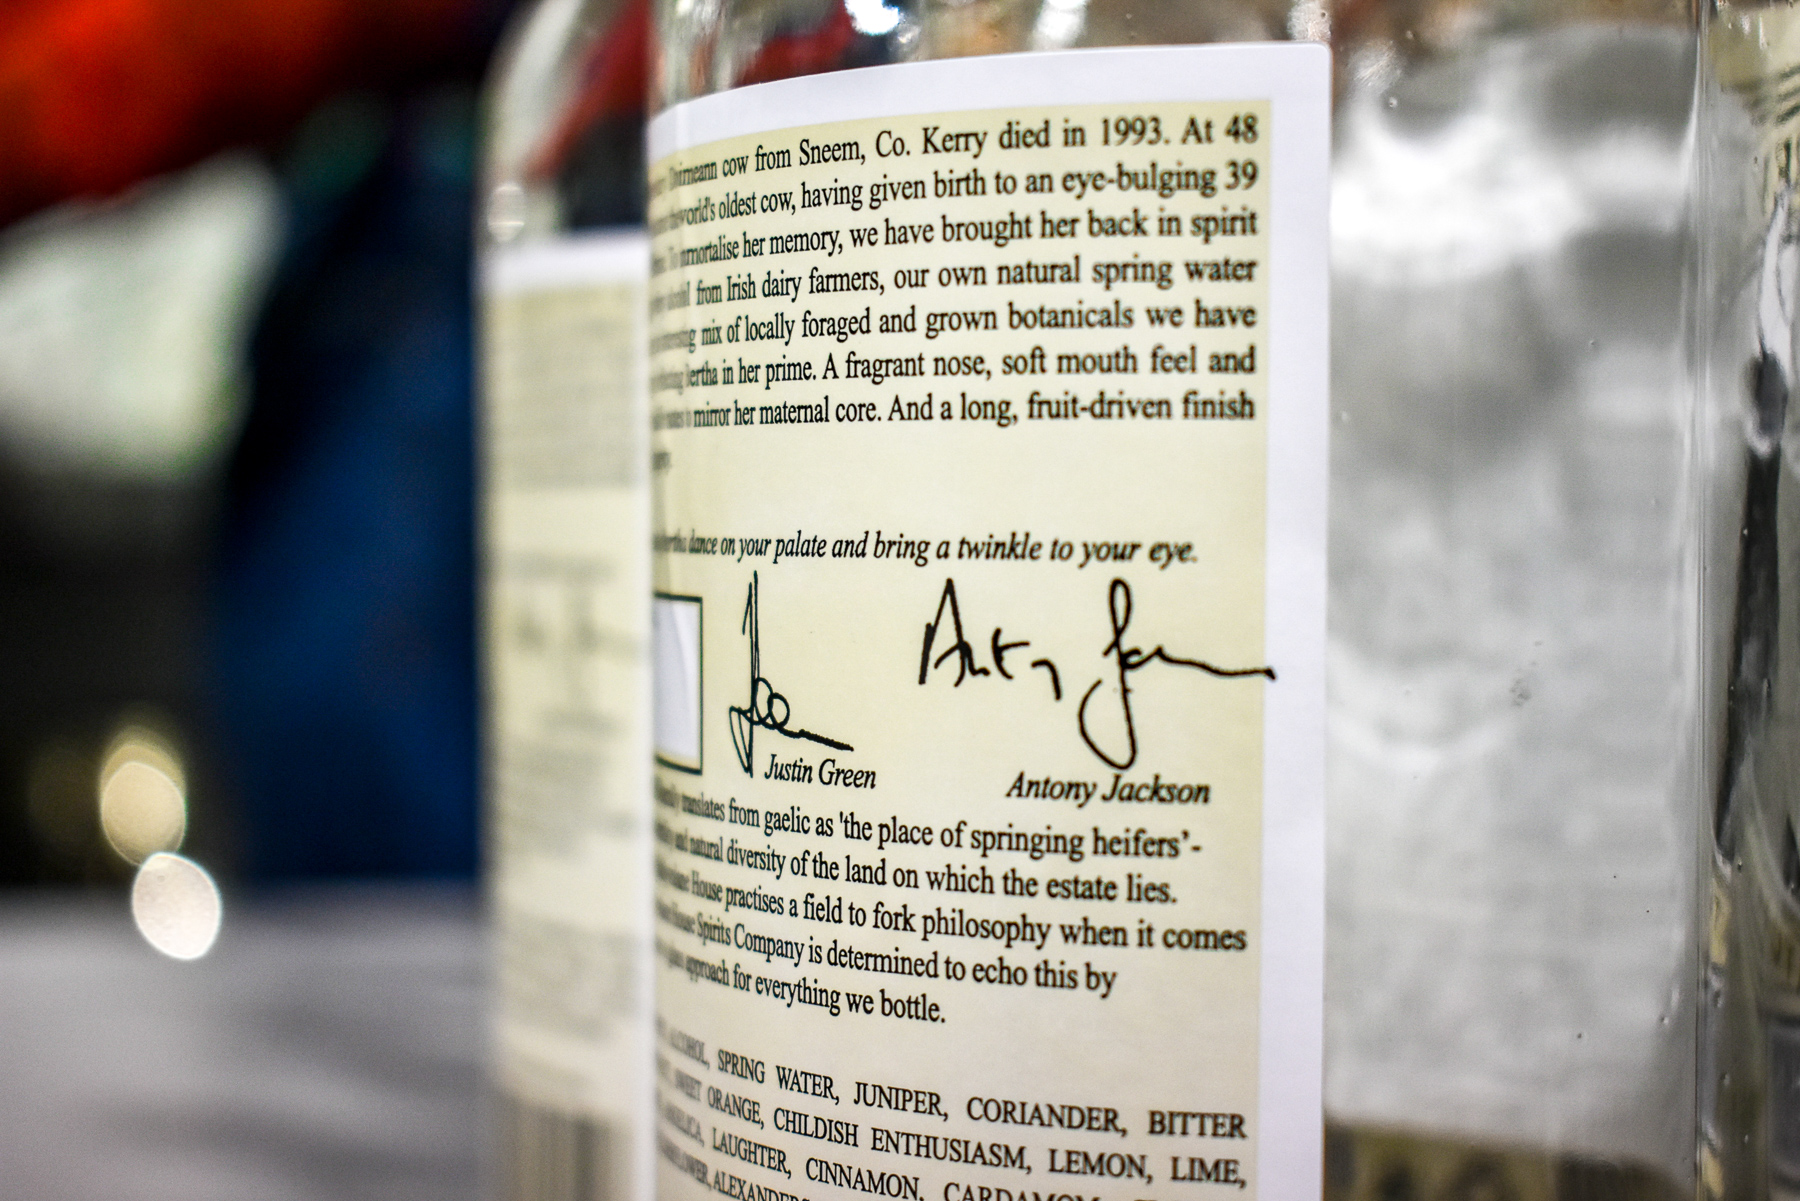 cow from Sneem, Co. Kerry died in 1993. At 48
world's oldest cow, having given birth to an eye-bulging 39
immortalise her memory, we have brought her back in spirit
from Irish dairy farmers, our own natural spring water
mix of locally foraged and grown botanicals we have
in her prime. A fragrant nose, soft mouth feel and
mirror her maternal core. And a long, fruit-driven finish
dance on your palate and bring a twinkle to your eye.
Antony Ja
Justin Green
Antony Jackson
translates from gaelic as 'the place of springing heifers’-
and natural diversity of the land on which the estate lies.
House practises a field to fork philosophy when it comes
House Spirits Company is determined to echo this by
approach for everything we bottle.
ALCOHOL, SPRING WATER, JUNIPER, CORIANDER, BITTER
SWEET ORANGE, CHILDISH ENTHUSIASM, LEMON, LIME,
ANGELICA, LAUGHTER, CINNAMON, CARDAMOM,